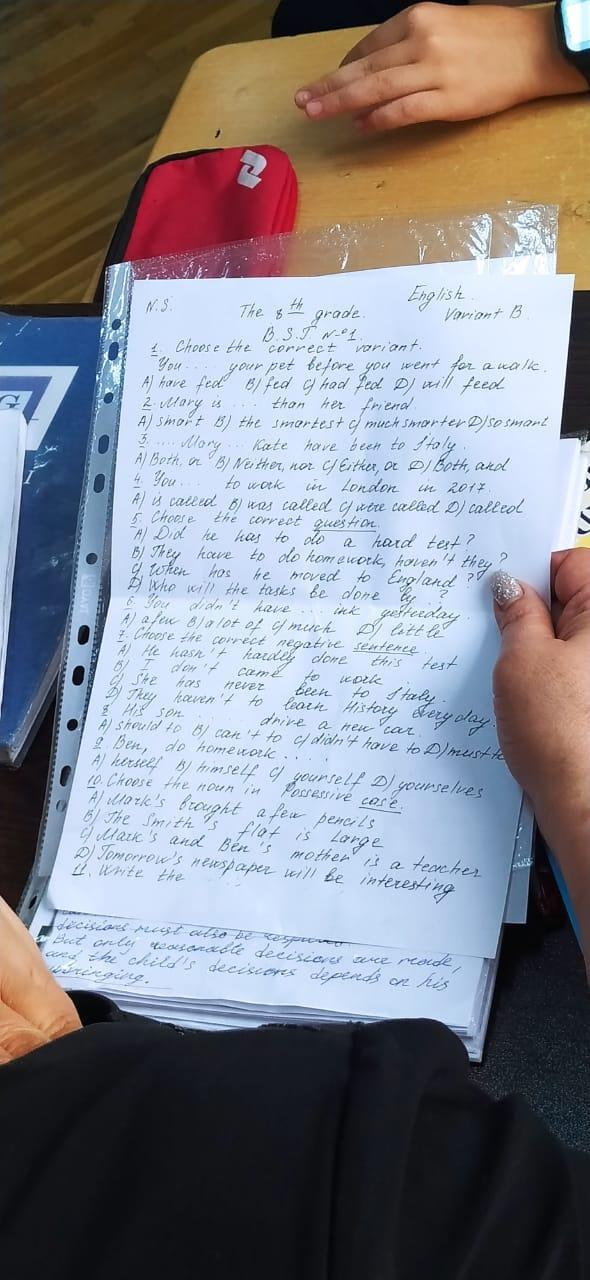 N.S.
The 8th grade.
English.
Variant B.
B.S.T N-º1.
1. Choose the correct variant.
You .... your pet before you went for a walk.
A) have fed B) fed C) had fed D) will feed
2. Mary is .... than her friend.
A) smart B) the smartest C) much smarter D) so smart
3. .... Mary ... Kate have been to Italy.
A) Both, or B) Neither, nor C) Either, or D) Both, and
4. You ... to work in London in 2017.
A) is called B) was called C) were called D) called
5. Choose the correct question.
A) Did he has to do a hard test?
B) They have to do homework, haven't they?
C) When has he moved to England?
D) Who will the tasks be done by...?
6. You didn't have ... ink yesterday.
A) a few B) a lot of C) much D) little
7. Choose the correct negative sentence.
A) He hasn't hardly done this test
B) I don't came to work.
C) She has never been to Italy.
D) They haven't to learn History every day.
8. His son .... drive a new car.
A) should to B) can't to C) didn't have to D) must to
9. Ben, do homework ....
A) herself B) himself C) yourself D) yourselves
10. Choose the noun in Possessive case.
A) Mark's brought a few pencils
B) The Smith's flat is large
C) Mark's and Ben's mother is a teacher
D) Tomorrow's newspaper will be interesting
11. Write the ...
decisions must also be
But only reasonable decisions are made,
and the child's decisions depends on his
G